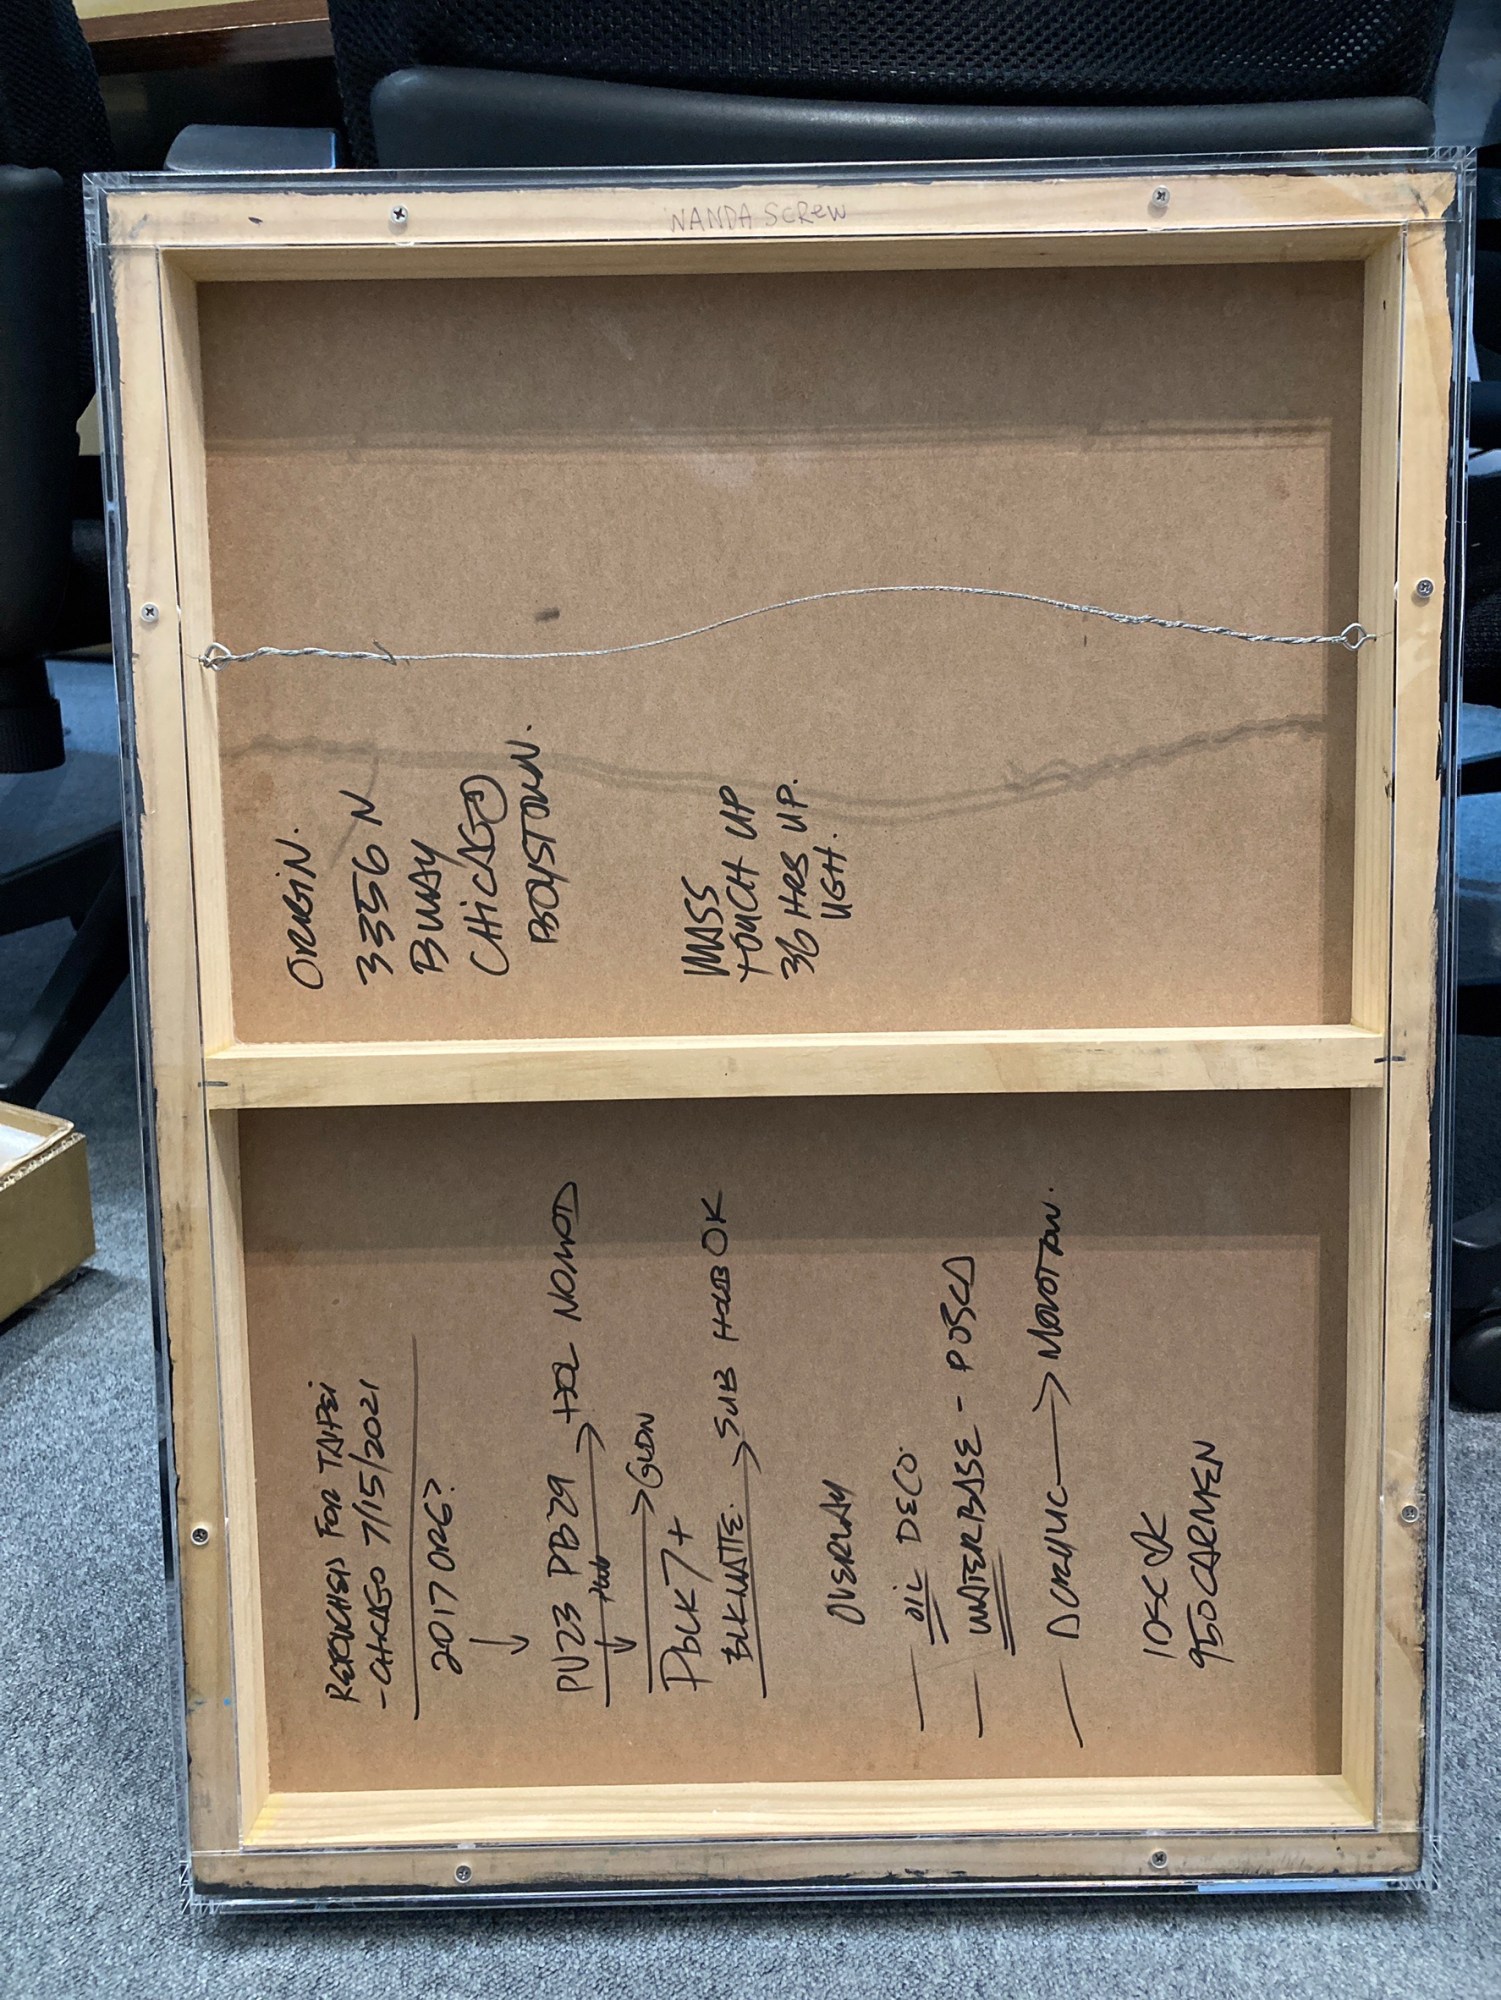 NANDA SCREW
ORIGIN.
3356 N
BWAY
CHICAGO
BOYSTOWN.
MASS
TOUCH UP
36 HRS UP.
UGH.
RETOUCHED FOR TAIPEI
- CHICAGO 7/15/2021
2017 ORG?
↓
PV23 PB29 → NOMOD
↓ → GLDN
PBLK7+
BLKMATTE. → SUB HOLB OK
OVERLAY
— OIL DECO.
— WATERBASE - POSCA
— DCRYLIC → MONOTOW.
950 CARMEN